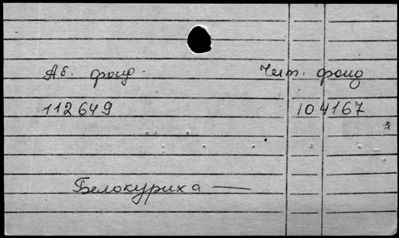 Аб. фонд. Чит. фонд
112649 104167
Белокуриха —